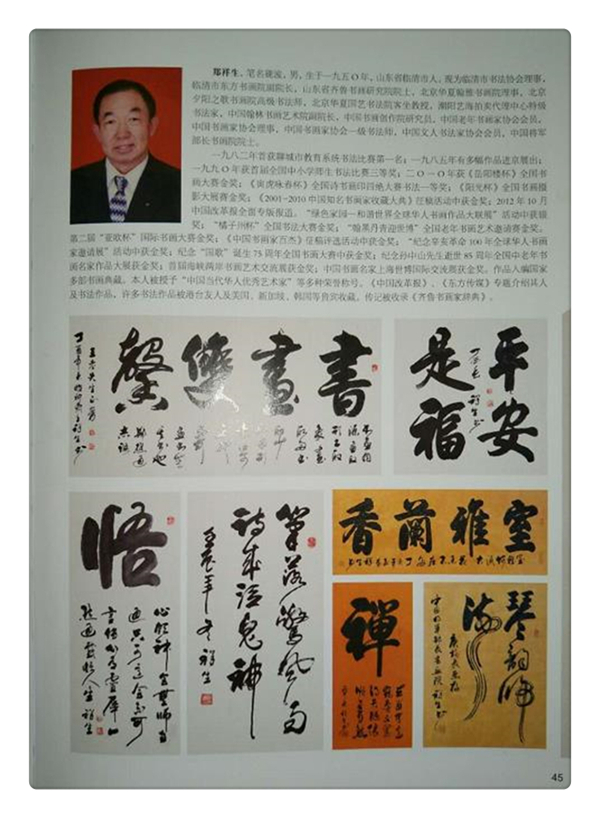 郑祥生，笔名砚波，男，生于一九五〇年，山东省临清市人。现为临清市书法协会理事，
临清市东方书画院副院长，山东省齐鲁书画研究院院士，北京华夏翰雅书画院理事，北京
夕阳之歌书画院高级书法师，北京华夏国艺书法院客坐教授，潮阳艺海拍卖代理中心特级
书法家，中国翰林书画艺术院副院长，中国书画创作院研究员，中国老年书画家协会会员，
中国书画家协会理事，中国书画家协会一级书法师，中国文人书法家协会会员，中国将军
部长书画院院士。
一九八二年首获聊城市教育系统书法比赛第一名；一九八五年有多幅作品进京展出；
一九九〇年获首届全国中小学师生书法比赛三等奖；二〇一〇年获《岳阳楼杯》全国书
画大赛金奖；《寅虎咏春杯》全国诗书画印四绝大赛书法一等奖；《阳光杯》全国书画摄
影大展赛金奖；《2001-2010中国知名书画家收藏大典》征稿活动中获金奖；2012年10月
中国改革报全面专版报道。“绿色家园—和谐世界全球华人书画作品大联展”活动中获颁
奖；“橘子州杯”全国书法大赛金奖；“翰墨丹青迎世博”全国老年书画艺术邀请赛金奖。
第二届“亚欧杯”国际书画大赛金奖；《中国书画家百杰》征稿评选活动中获金奖；“纪念辛亥革命100年全球华人书画
家邀请展”活动中获金奖；纪念“国歌”诞生75周年全国书画大赛中获金奖；纪念孙中山先生逝世85周年全国中老年书
画名家作品大展获金奖；首届海峡两岸书画艺术交流展获金奖；中国书画名家上海世博国际交流展获金奖。作品入编国家
多部书画典藏。本人被授予“中国当代华人优秀艺术家”等多种荣誉称号。《中国改革报》、《东方传媒》专题介绍其人
及书法作品。许多书法作品被港台友人及美国、新加坡、韩国等良宾收藏。传记被收录《齐鲁书画家辞典》。
書畫雙馨
平安
是福
祥生书
悟
心领神会无师自
通只可意会不可
言传
人生 祥生
筆落驚風雨
詩成泣鬼神
祥生
室雅蘭香
禪
琴韵
祥生书
45